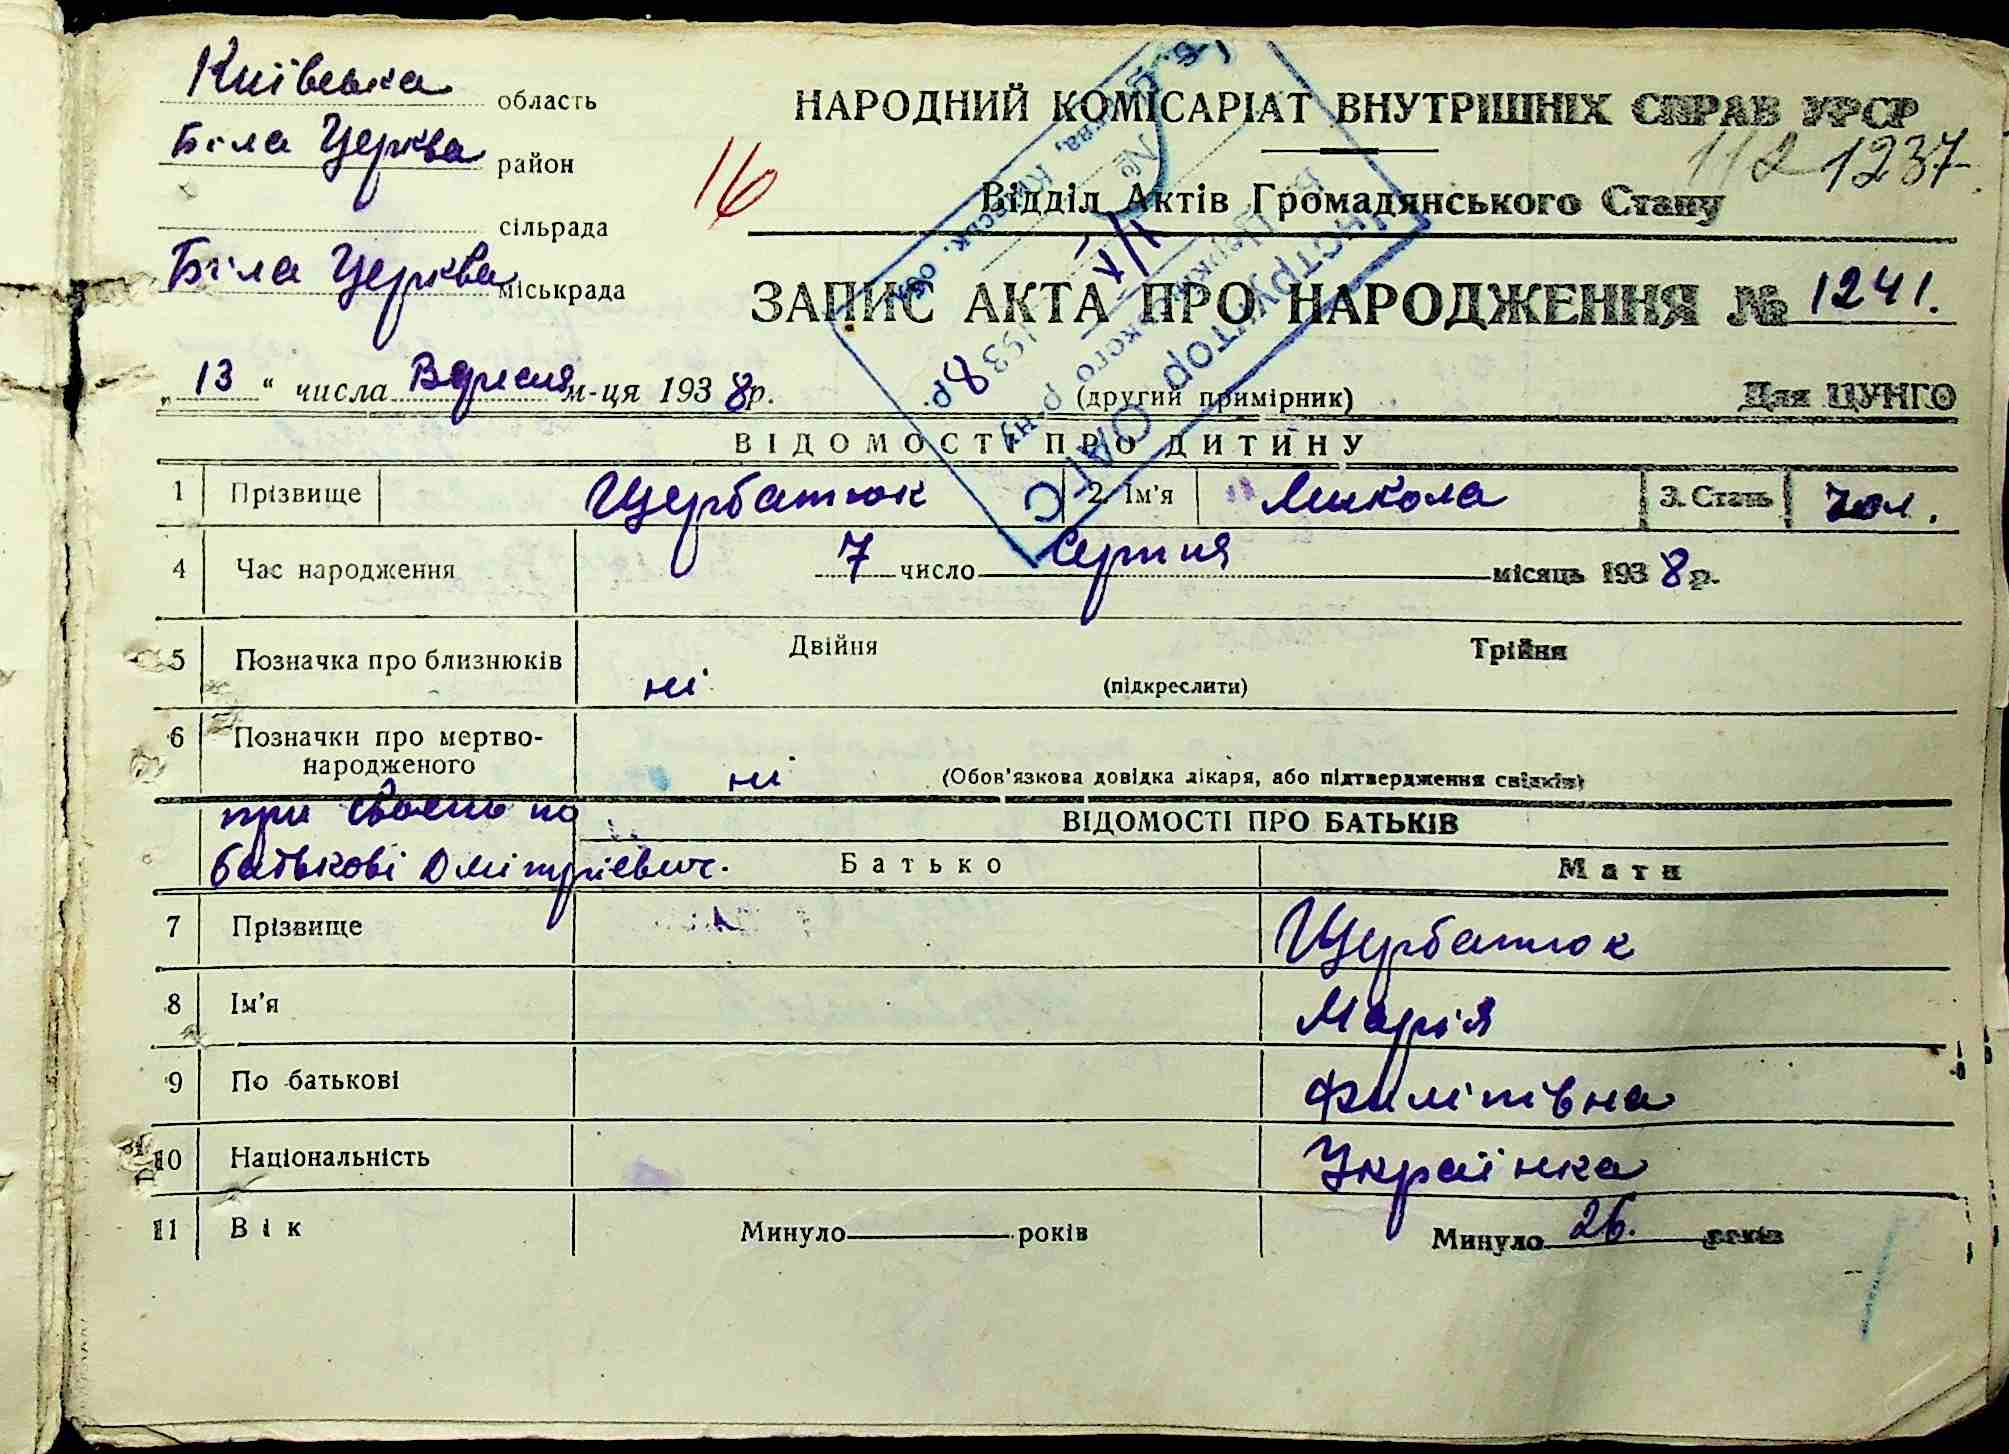 Київська область
Біла Церква район
сільрада
Біла Церква міськрада
16
НАРОДНИЙ КОМІСАРІАТ ВНУТРІШНІХ СПРАВ УРСР
112 1237
Відділ Актів Громадянського Стану
ЗАПИС АКТА ПРО НАРОДЖЕННЯ № 1241.
„13“ числа Вересня м-ця 1938р.
(другий примірник)
Для ЦУНГО
Інструктор ОАГС
Церківського р-ну
№
1938 р.
ВІДОМОСТІ ПРО ДИТИНУ
1 Прізвище Щербатюк 2. Ім'я Микола 3. Стать чол.
4 Час народження 7 число Серпня місяць 1938р.
5 Позначка про близнюків ні Двійня Трійня
(підкреслити)
6 Позначки про мертво-
народженого ні (Обов'язкова довідка лікаря, або підтвердження свідків)
при своєнь по
батькові Дмітрієвич.
ВІДОМОСТІ ПРО БАТЬКІВ
Батько Мати
7 Прізвище Щербатюк
8 Ім'я Марія
9 По батькові Филіпівна
10 Національність Українка
11 Вік Минуло років Минуло 26. років